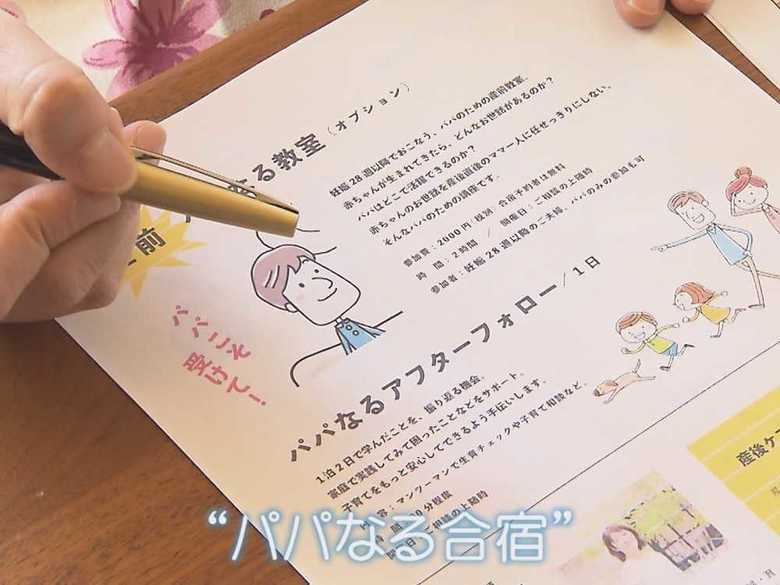 なる教室(オプション)
妊娠28週以降でおこなう、パパのための産前教室。
赤ちゃんが生まれてきたら、どんなお世話があるのか?
パパはどこで活躍できるのか?
赤ちゃんのお世話を産後直後のママ一人に任せっきりにしない、
そんなパパのための講座です。
参加費:2000円/娘講 合宿予約者は無料
時 間:2時間 / 開催日:ご相談の上随時
参加者:妊娠28週以降のご夫婦、パパのみの参加も可
前
パパこそ
受けて!
パパなるアフターフォロー/1日
1泊2日で学んだことを、振り返る機会。
家庭で実践してみて困ったことなどをサポート。
子育てをもっと安心してできるよう手伝いします。
内 容:マンツーマンで生育チェックや子育て相談など。
0分程度
ご相談の上随時
産後ケ
“パパなる合宿”